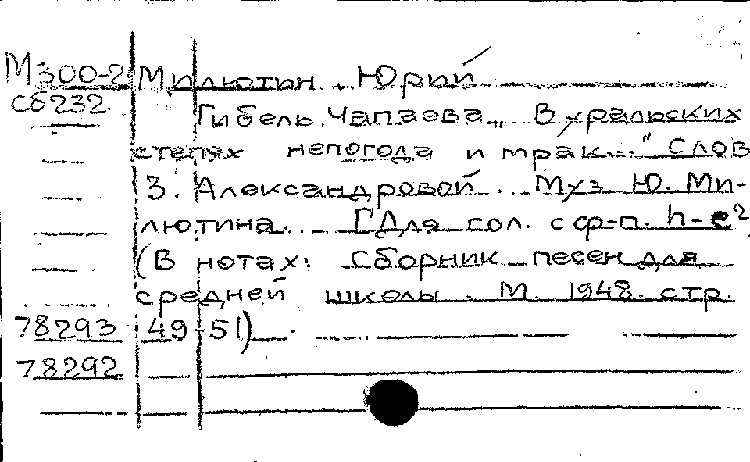 М300-2 Милютин Юрий
Сб232 Гибель Чапаева „В уральских
степях непогода и мрак..." Слов
З. Александровой... Муз. Ю. Ми-
лютина. [Для сол. с ф-п. h-e²
(В нотах: Сборник песен для
средней школы. М. 1948. стр.
78293 49-51).
78292